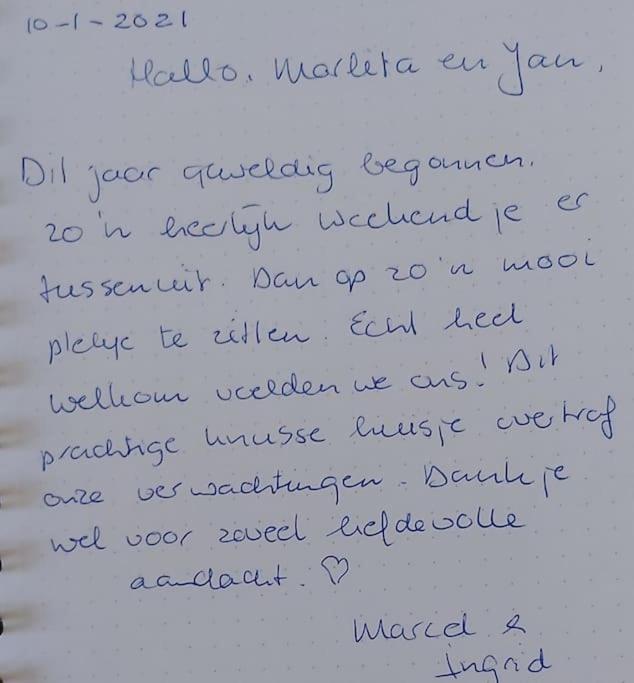 10-1-2021
Hallo, Marleta en Jan,
Dit jaar geweldig begonnen.
zo'n heerlijk weekend je er
tussenuit. Dan op zo'n mooi
plekje te zitten. Echt heel
welkom voelden we ons! Dit
prachtige knusse huisje overtrof
onze verwachtingen. Dank je
wel voor zoveel liefdevolle
aandacht. ♡
Marcel &
Ingrid